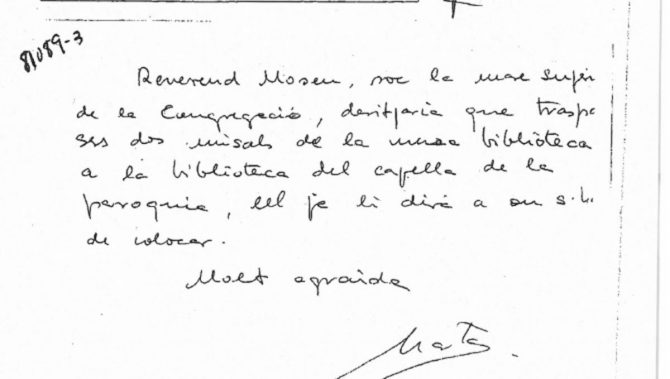 81089-3
Reverend Mosen, soc la mare super
de la Congregació, desitjaria que traspas
ses dos missals de la meva biblioteca
a la biblioteca del capella de la
parroquia, ell ja li dirá a on s.h.
de colocar.
Molt agraida